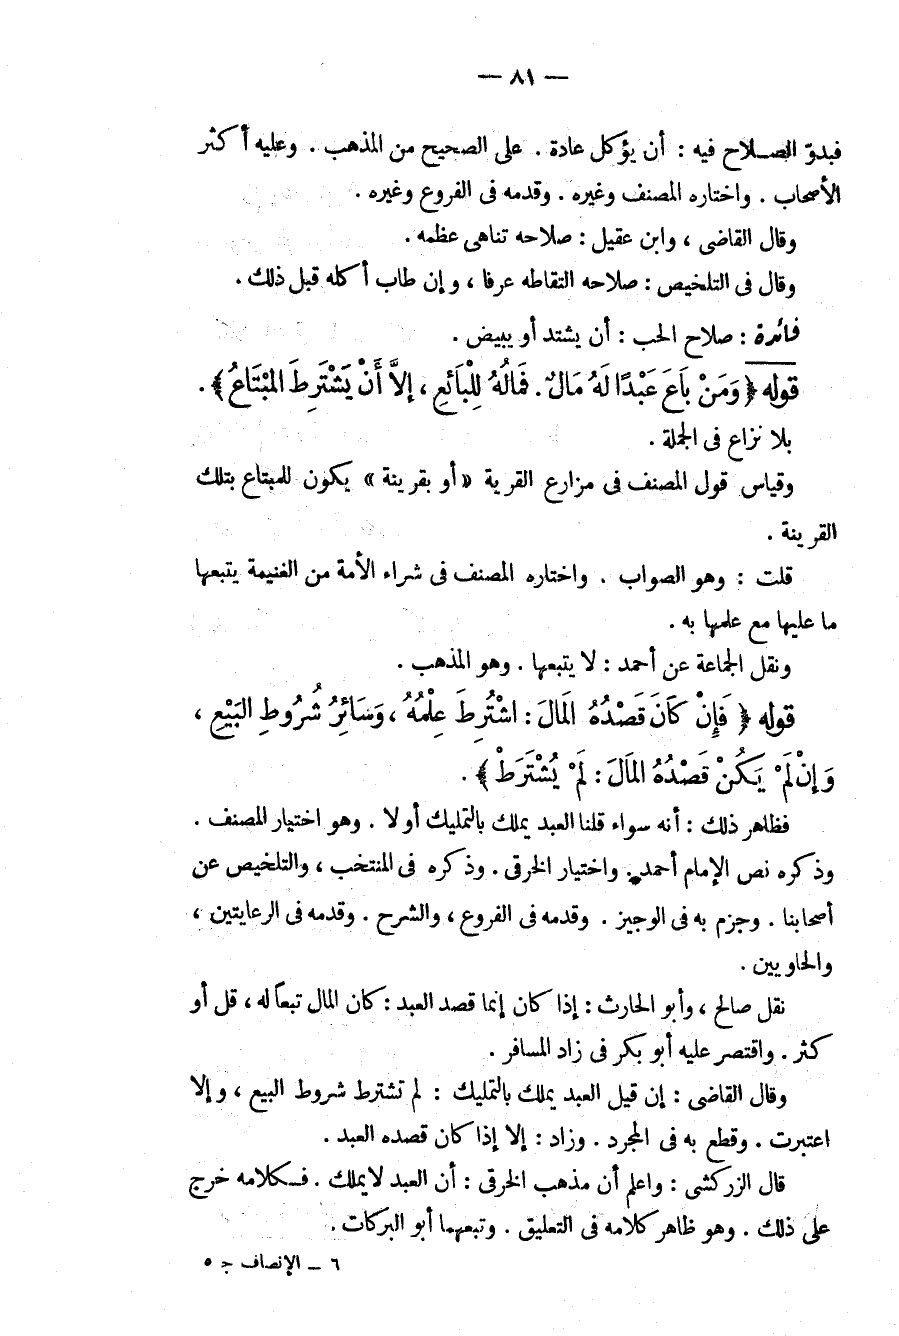 — ٨١ —
فبدوّ الصـلاح فيه : أن يؤكل عادة . على الصحيح من المذهب . وعليه أكثر
الأصحاب . واختاره المصنف وغيره . وقدمه فى الفروع وغيره .
وقال القاضى ، وابن عقيل : صلاحه تناهى عظمه .
وقال فى التلخيص : صلاحه التقاطه عرفا ، وإن طاب أكله قبل ذلك .
فائدة : صلاح الحب : أن يشتد أو يبيض .
قوله ﴿ وَمَنْ بَاعَ عَبْدًا لَهُ مَالٌ . فَمَالُهُ لِلْبَائِعِ ، إلاَّ أَنْ يَشْتَرِطَ المبْتَاعُ ﴾ .
بلا نزاع فى الجملة .
وقياس قول المصنف فى مزارع القرية « أو بقرينة » يكون للمبتاع بتلك
القرينة .
قلت : وهو الصواب . واختاره المصنف فى شراء الأمة من الغنيمة يتبعها
ما عليها مع علمها به .
ونقل الجماعة عن أحمد : لا يتبعها . وهو المذهب .
قوله ﴿ فَإِنْ كَانَ قَصْدُهُ المَالَ : اشْتُرِطَ عِلْمُهُ ، وَسَائِرُ شُرُوطِ البَيْعِ ،
وَإِنْ لَمْ يَكُنْ قَصْدُهُ المَالَ : لَمْ يُشْتَرَطْ ﴾ .
فظاهر ذلك : أنه سواء قلنا العبد يملك بالتمليك أو لا . وهو اختيار المصنف .
وذكره نص الإمام أحمد . واختيار الخرقى . وذكره فى المنتخب ، والتلخيص عن
أصحابنا . وجزم به فى الوجيز . وقدمه فى الفروع ، والشرح . وقدمه فى الرعايتين ،
والحاويين .
نقل صالح ، وأبو الحارث : إذا كان إنما قصد العبد : كان المال تبعاً له ، قل أو
كثر . واقتصر عليه أبو بكر فى زاد المسافر .
وقال القاضى : إن قيل العبد يملك بالتمليك : لم تشترط شروط البيع ، وإلا
اعتبرت . وقطع به فى المجرد . وزاد : إلا إذا كان قصده العبد .
قال الزركشى : واعلم أن مذهب الخرقى : أن العبد لا يملك . فـكلامه خرج
على ذلك . وهو ظاهر كلامه فى التعليق . وتبعهما أبو البركات .
٦ ـ الإنصاف جـ ٥